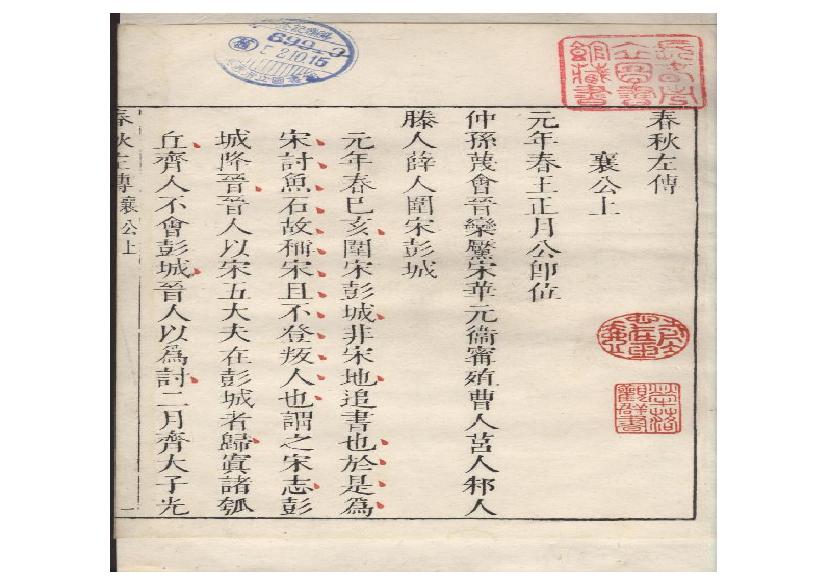 春秋左傳
襄公上
元年春王正月公卽位
仲孫蔑會晉欒黶宋華元衞甯殖曹人莒人邾人
滕人薛人圍宋彭城
元年春巳亥圍宋彭城非宋地追書也於是爲
宋討魚石故稱宋且不登叛人也謂之宋志彭
城降晉晉人以宋五大夫在彭城者歸寘諸瓠
丘齊人不會彭城晉人以爲討二月齊大子光
春秋左傳襄公上
一
699-3
2.10.15